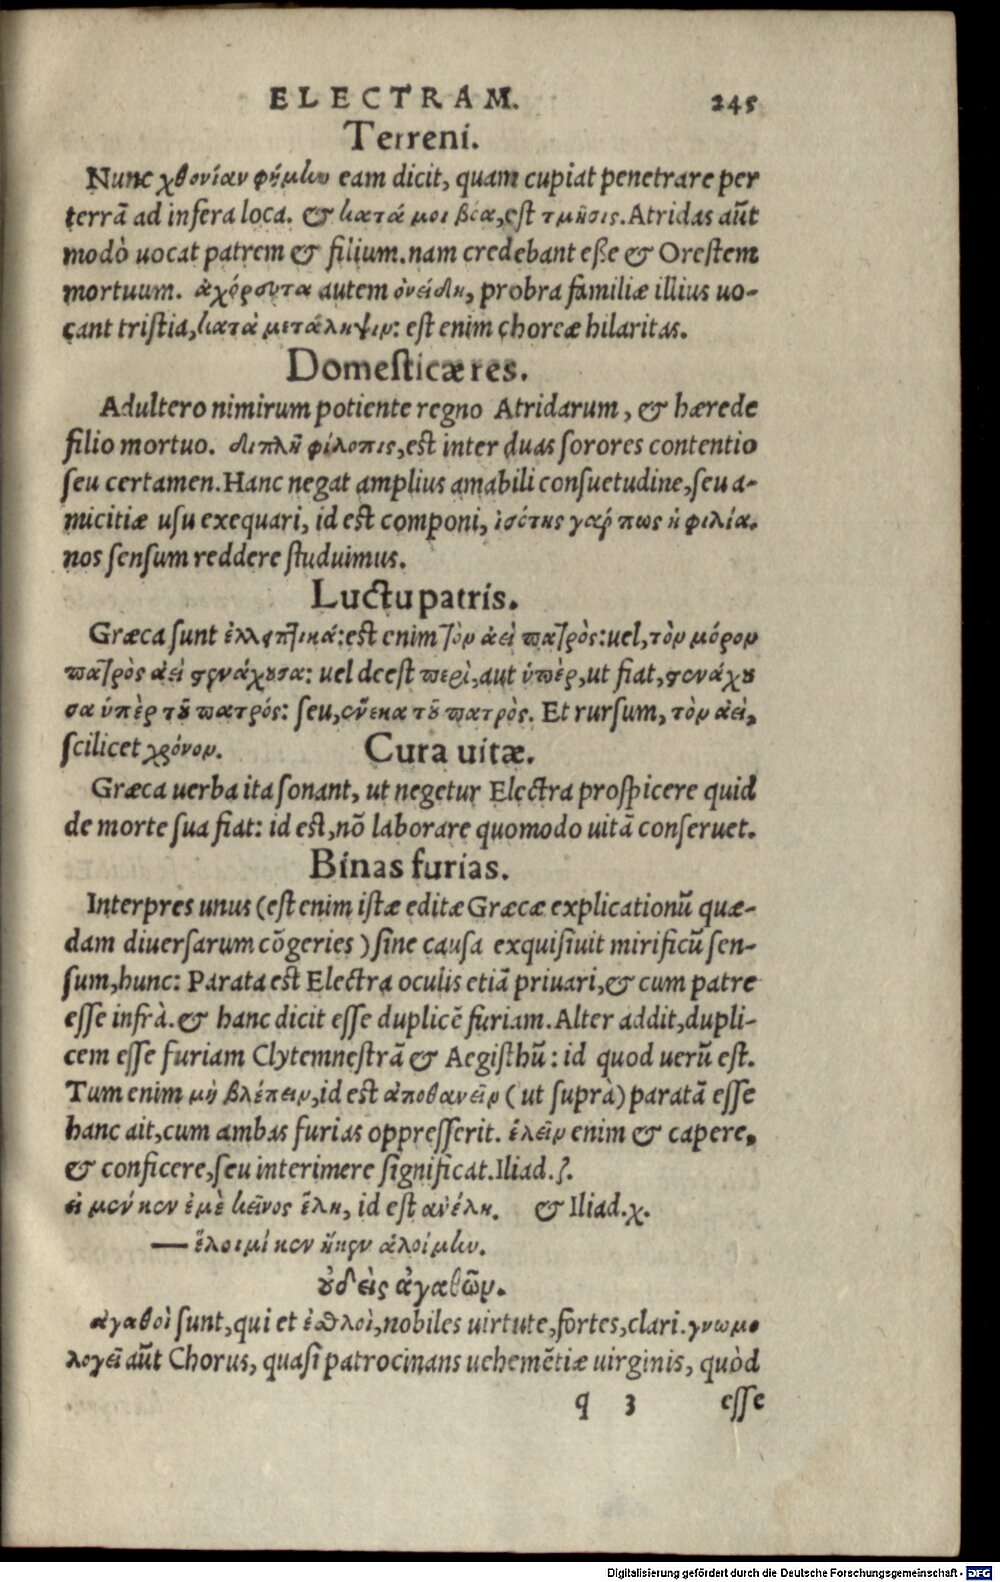 ELECTRAM. 245
Terreni.
Nunc χθονίαν φήμην eam dicit, quam cupiat penetrare per
terrã ad infera loca. & κατά μοι βόα, est τμῆσις. Atridas aũt
modò uocat patrem & filium. nam credebant eße & Orestem
mortuum. ἀχόρευτα autem ὀνείδη, probra familiæ illius uo-
cant tristia, κατὰ μετάληψιν: est enim choreæ hilaritas.
Domesticæ res.
Adultero nimirum potiente regno Atridarum, & hærede
filio mortuo. διπλῆ φίλοπις, est inter duas sorores contentio
seu certamen. Hanc negat amplius amabili consuetudine, seu a-
micitiæ usu exequari, id est componi, ἰσότης γάρ πως ἡ φιλία.
nos sensum reddere studuimus.
Luctu patris.
Græca sunt ἐλλειπτικά: est enim τὸν ἀεὶ πατρὸς: uel, τὸν μόρον
πατρὸς ἀεὶ στενάχουσα: uel deest περὶ, aut ὑπὲρ, ut fiat, στενάχου
σα ὑπὲρ τοῦ πατρός: seu, οὕνεκα τοῦ πατρὸς. Et rursum, τὸν ἀεὶ,
scilicet χρόνον. Cura uitæ.
Græca uerba ita sonant, ut negetur Electra prospicere quid
de morte sua fiat: id est, nõ laborare quomodo uitã conseruet.
Binas furias.
Interpres unus (est enim istæ editæ Græcæ explicationũ quæ-
dam diuersarum cõgeries) sine causa exquisiuit mirificũ sen-
sum, hunc: Parata est Electra oculis etiã priuari, & cum patre
esse infrà. & hanc dicit esse duplicẽ furiam. Alter addit, dupli-
cem esse furiam Clytemnestrã & Aegisthũ: id quod uerũ est.
Tum enim μὴ βλέπειν, id est ἀποθανεῖν (ut suprà) paratã esse
hanc ait, cum ambas furias oppresserit. ἑλεῖν enim & capere,
& conficere, seu interimere significat. Iliad. ζ.
εἰ μέν κεν ἐμὲ κεῖνος ἕλη, id est ἀνέλη. & Iliad. χ.
— ἕλοιμί κεν ἤ κεν ἁλοίμην.
οὐδεὶς ἀγαθῶν.
ἀγαθοὶ sunt, qui et ἐσθλοὶ, nobiles uirtute, fortes, clari. γνωμο
λογεῖ aũt Chorus, quasi patrocinans uehemẽtiæ uirginis, quòd
q 3 esse
Digitalisierung gefördert durch die Deutsche Forschungsgemeinschaft - DFG